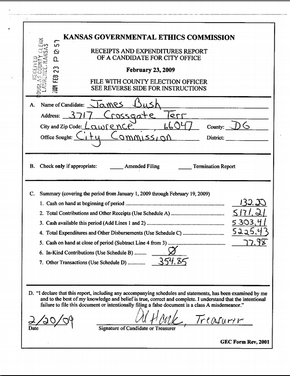 KANSAS GOVERNMENTAL ETHICS COMMISSION
RECEIPTS AND EXPENDITURES REPORT
OF A CANDIDATE FOR CITY OFFICE
February 23, 2009
FILE WITH COUNTY ELECTION OFFICER
SEE REVERSE SIDE FOR INSTRUCTIONS
A. Name of Candidate: James Bush
Address: 3717 Crossgate Terr
City and Zip Code: Lawrence 66047 County: DG
Office Sought: City Commission District:
B. Check only if appropriate: Amended Filing Termination Report
C. Summary (covering the period from January 1, 2009 through February 19, 2009)
1. Cash on hand at beginning of period 132.20
2. Total Contributions and Other Receipts (Use Schedule A) 5171.21
3. Cash available this period (Add Lines 1 and 2) 5303.41
4. Total Expenditures and Other Disbursements (Use Schedule C) 5225.43
5. Cash on hand at close of period (Subtract Line 4 from 3) 77.98
6. In-Kind Contributions (Use Schedule B) Ø
7. Other Transactions (Use Schedule D) 354.85
D. "I declare that this report, including any accompanying schedules and statements, has been examined by me
and to the best of my knowledge and belief is true, correct and complete. I understand that the intentional
failure to file this document or intentionally filing a false document is a class A misdemeanor."
2/20/09 Treasurer
Date Signature of Candidate or Treasurer
GEC Form Rev, 2001